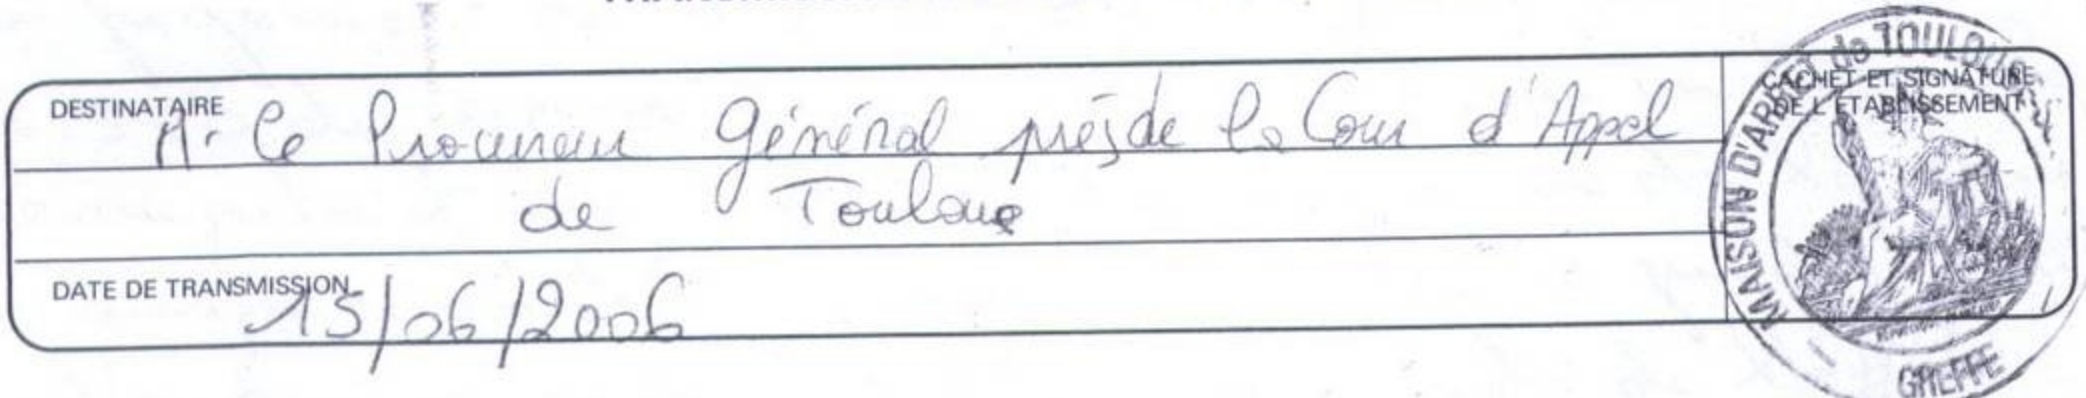 DESTINATAIRE
M. le Procureur Général près de la Cour d'Appel
de Toulouse
DATE DE TRANSMISSION
15/06/2006
CACHET ET SIGNATURE
DE L'ETABLISSEMENT
MAISON D'ARRET de TOULOUSE
GREFFE